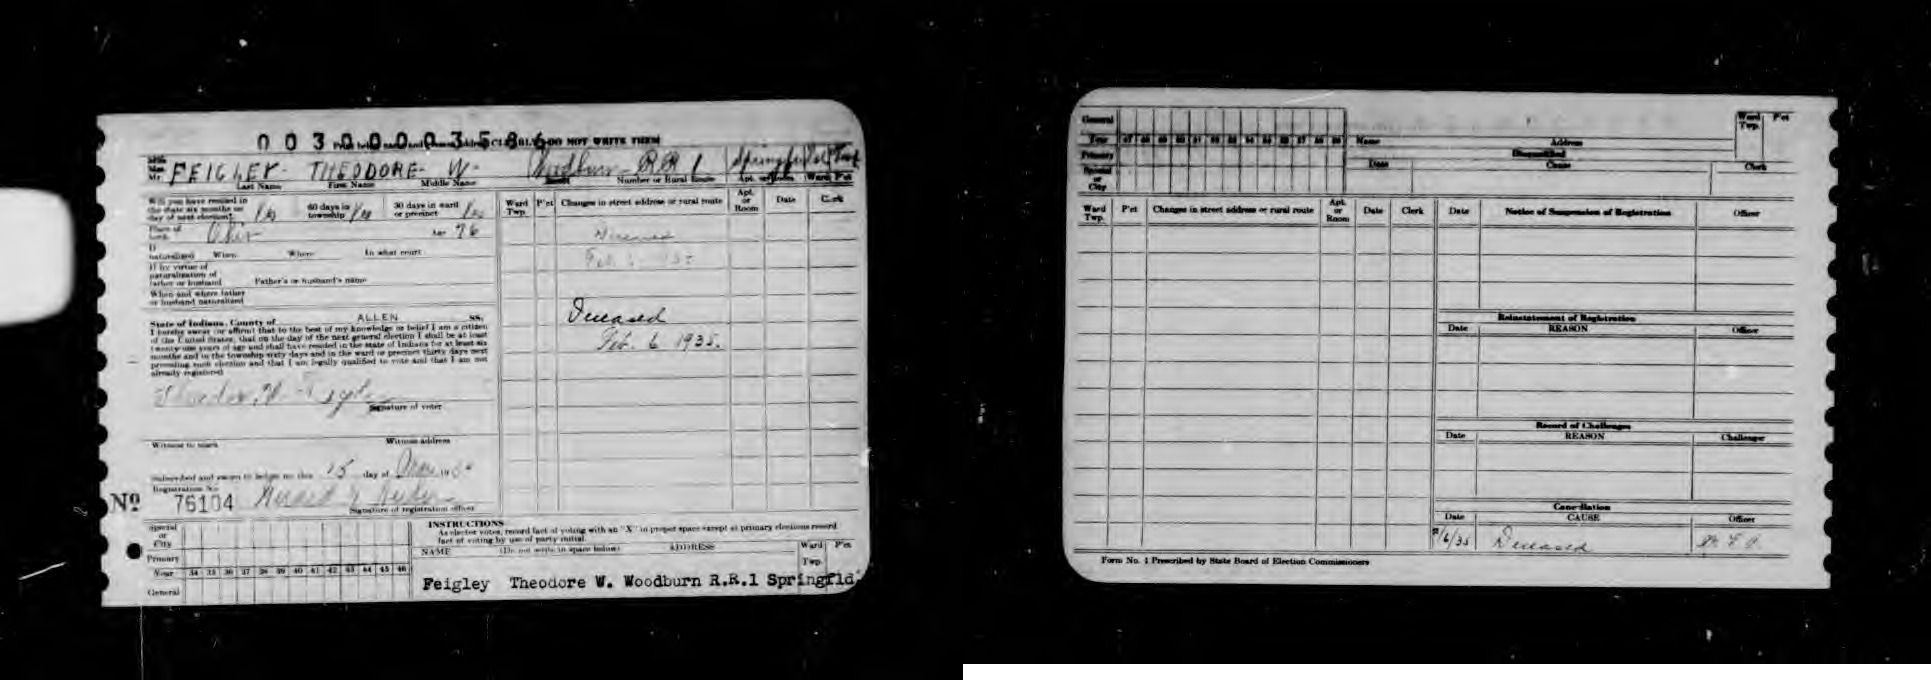 00300003586 DO NOT WRITE THEM
Mr. FEIGLEY THEODORE W. Woodburn RR 1 Springfield Twp
Last Name First Name Middle Name Number or Rural Route Apt. or Room Ward P'ct
Will you have resided in the state six months on day of next election? Yes 60 days in township Yes 30 days in ward or precinct Yes
Place of birth Ohio Age 76
If naturalized When Where In what court
If by virtue of naturalization of father or husband Father's or husband's name
When and where father or husband naturalized
State of Indiana, County of ALLEN SS.
I hereby swear (or affirm) that to the best of my knowledge or belief I am a citizen
of the United States, that on the day of the next general election I shall be at least
twenty-one years of age and shall have resided in the state of Indiana for at least six
months and in the township sixty days and in the ward or precinct thirty days next
preceding such election and that I am legally qualified to vote and that I am not
already registered
Theodore W. Feigley
Signature of voter
Witness to mark Witness address
Subscribed and sworn to before me this 15 day of 19
Registration No.
Nº 76104
Signature of registration officer
Ward Twp. P'ct Changes in street address or rural route Apt. or Room Date Clerk
Deceased
Feb. 6 1935
Deceased
Feb. 6 1935.
Special or City
Primary
Year 34 35 36 37 38 39 40 41 42 43 44 45 46
General
INSTRUCTIONS
As elector votes, record fact of voting with an "X" in proper space except at primary elections record
fact of voting by use of party initial.
NAME (Do not write in space below) ADDRESS Ward Twp. P'ct
Feigley Theodore W. Woodburn R.R.1 Springfld
General
Year 47 48 49 50 51 52 53 54 55 56 57 58 59
Primary
Special or City
Name Address Ward Twp. P'ct
Disqualified
Date Cause Clerk
Ward Twp. P'ct Changes in street address or rural route Apt. or Room Date Clerk
Date Notice of Suspension of Registration Officer
Reinstatement of Registration
Date REASON Officer
Record of Challenges
Date REASON Challenger
Cancellation
Date CAUSE Officer
2/6/35 Deceased
Form No. 1 Prescribed by State Board of Election Commissioners